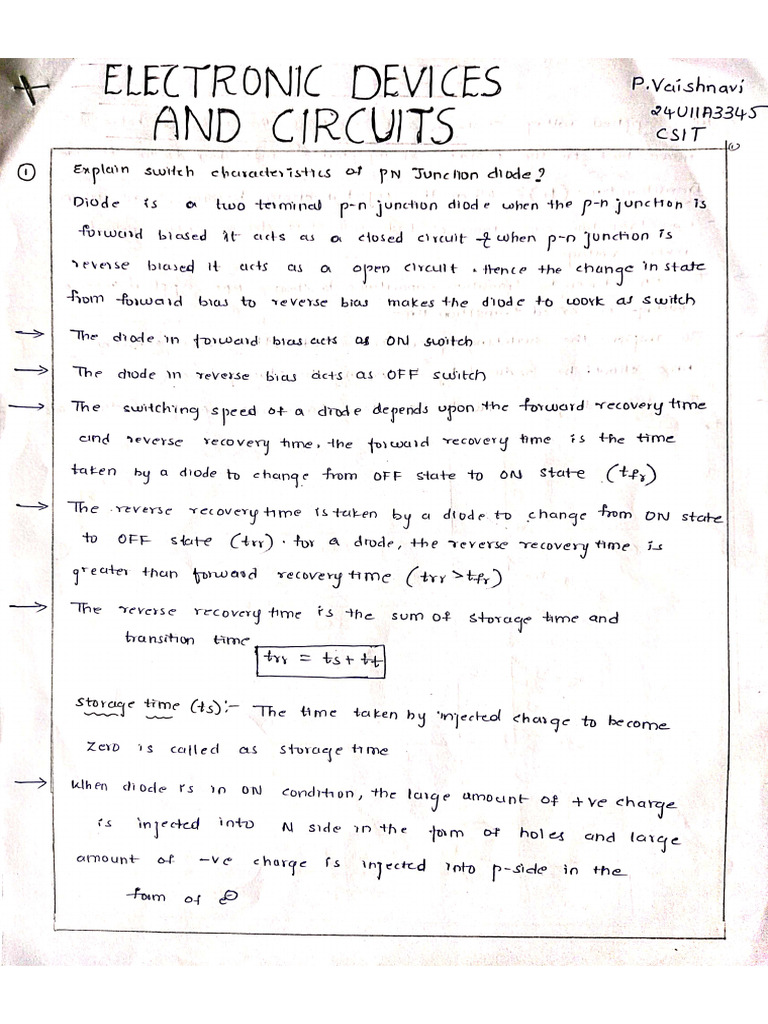 ELECTRONIC DEVICES
AND CIRCUITS
P.Vaishnavi
24U11A3345
CSIT
① Explain switch characteristics of PN Junction diode?
Diode is a two terminal p-n junction diode when the p-n junction is
forward biased it acts as a closed circuit & when p-n junction is
reverse biased it acts as a open circuit. Hence the change in state
from forward bias to reverse bias makes the diode to work as switch
→ The diode in forward bias acts as ON switch
→ The diode in reverse bias acts as OFF switch
→ The switching speed of a diode depends upon the forward recovery time
and reverse recovery time. the forward recovery time is the time
taken by a diode to change from OFF state to ON state (tfr)
→ The reverse recovery time is taken by a diode to change from ON state
to OFF state (trr). for a diode, the reverse recovery time is
greater than forward recovery time (trr > tfr)
→ The reverse recovery time is the sum of storage time and
transition time
trr = ts + tt
storage time (ts):- The time taken by injected charge to become
zero is called as storage time
→ When diode is in ON condition, the large amount of +ve charge
is injected into N side in the form of holes and large
amount of -ve charge is injected into p-side in the
form of